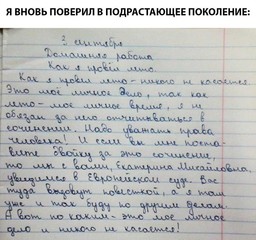 Я ВНОВЬ ПОВЕРИЛ В ПОДРАСТАЮЩЕЕ ПОКОЛЕНИЕ:
3 сентября
Домашняя работа
Как я провёл лето
Как я провёл лето - никого не касается.
Это моё личное дело, так как
лето - моё личное время, я не
обязан за него отчитываться в
сочинении. Надо уважать права
человека! И если вы мне поста-
вите двойку за это сочинение,
то мы с вами, Екатерина Михайловна,
увидимся в Европейском суде. Вас
туда вызовут повесткой, а я там
уже и так буду по другим делам.
А вот по каким - это моё личное
дело и никого не касается!